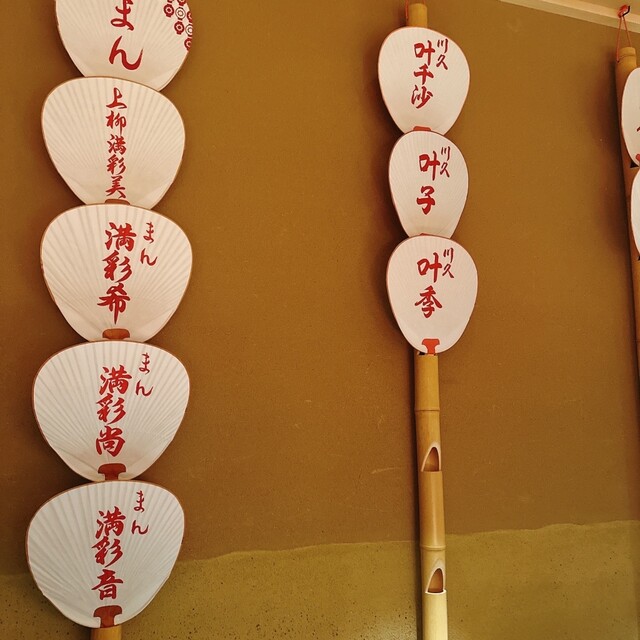 まん
上柳満彩美
まん
満彩希
まん
満彩尚
まん
満彩音
川久
叶千沙
川久
叶子
川久
叶季